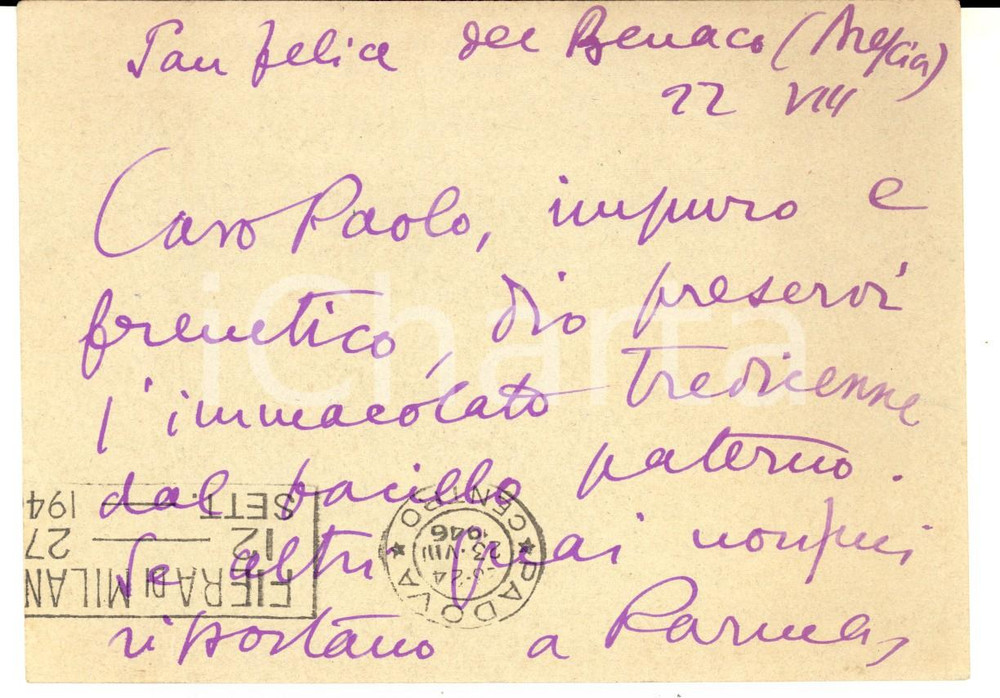 San Felice del Benaco (Brescia)
22 VIII
Caro Paolo, impuro e
frenetico, dio preservi
l'immacolato tredicenne
dal bacillo paterno.
Se altri guai non mi
riportano a Parma,
iCharta
FIERA DI MILAN
12 27
SETT 194
PADOVA CENTRO
23-24
23.VIII
1946